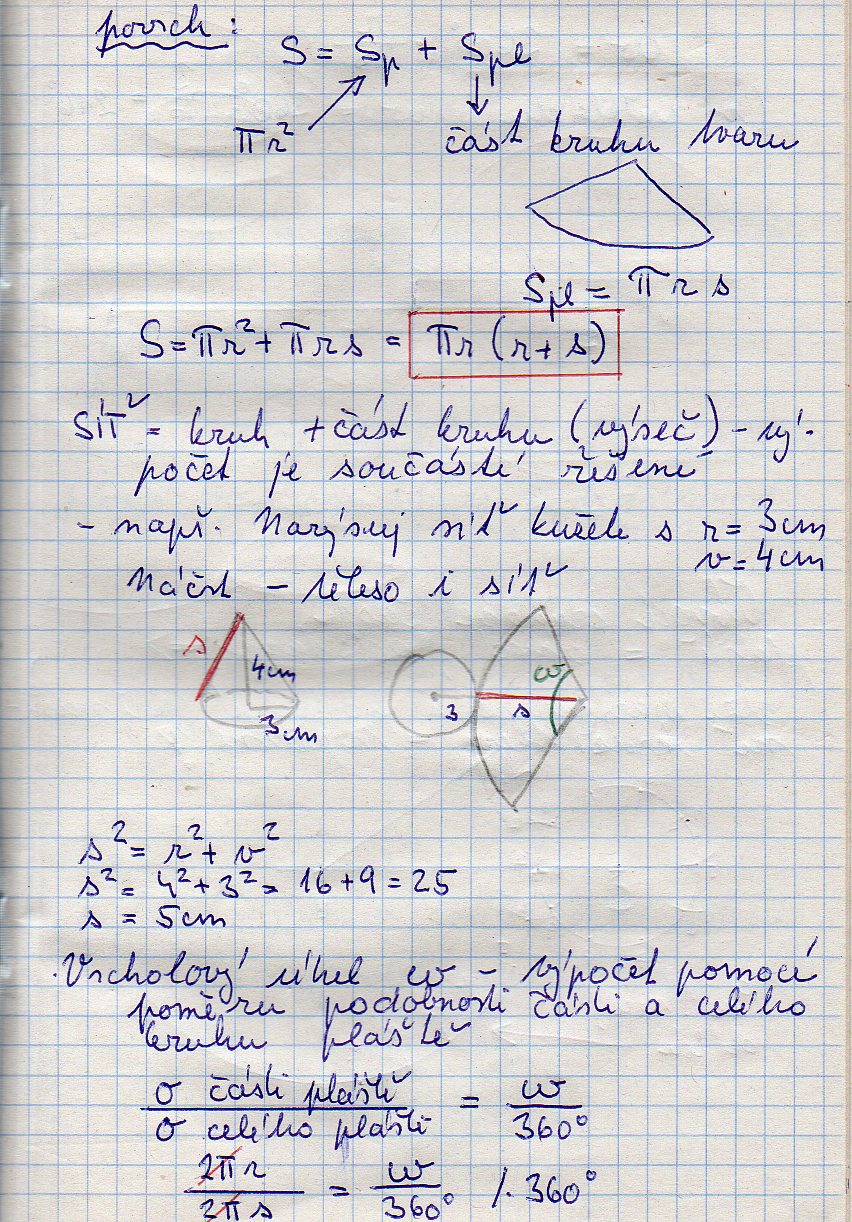 povrch:
S = Sp + Spl
πr²
část kruhu tvaru
Spl = πrs
S = πr² + πrs = πr (r + s)
SÍŤ = kruh + část kruhu (výseč) - vý-
počet je součástí řešení
- např. Narýsuj síť kužele s r = 3cm
v = 4cm
Náčrt - těleso i síť
s
4cm
3cm
3
s
ω
s² = r² + v²
s² = 4² + 3² = 16 + 9 = 25
s = 5cm
Vrcholový úhel ω - výpočet pomocí
poměru podobnosti části a celého
kruhu pláště
o části pláště / o celého pláště = ω / 360°
2πr / 2πs = ω / 360° /· 360°